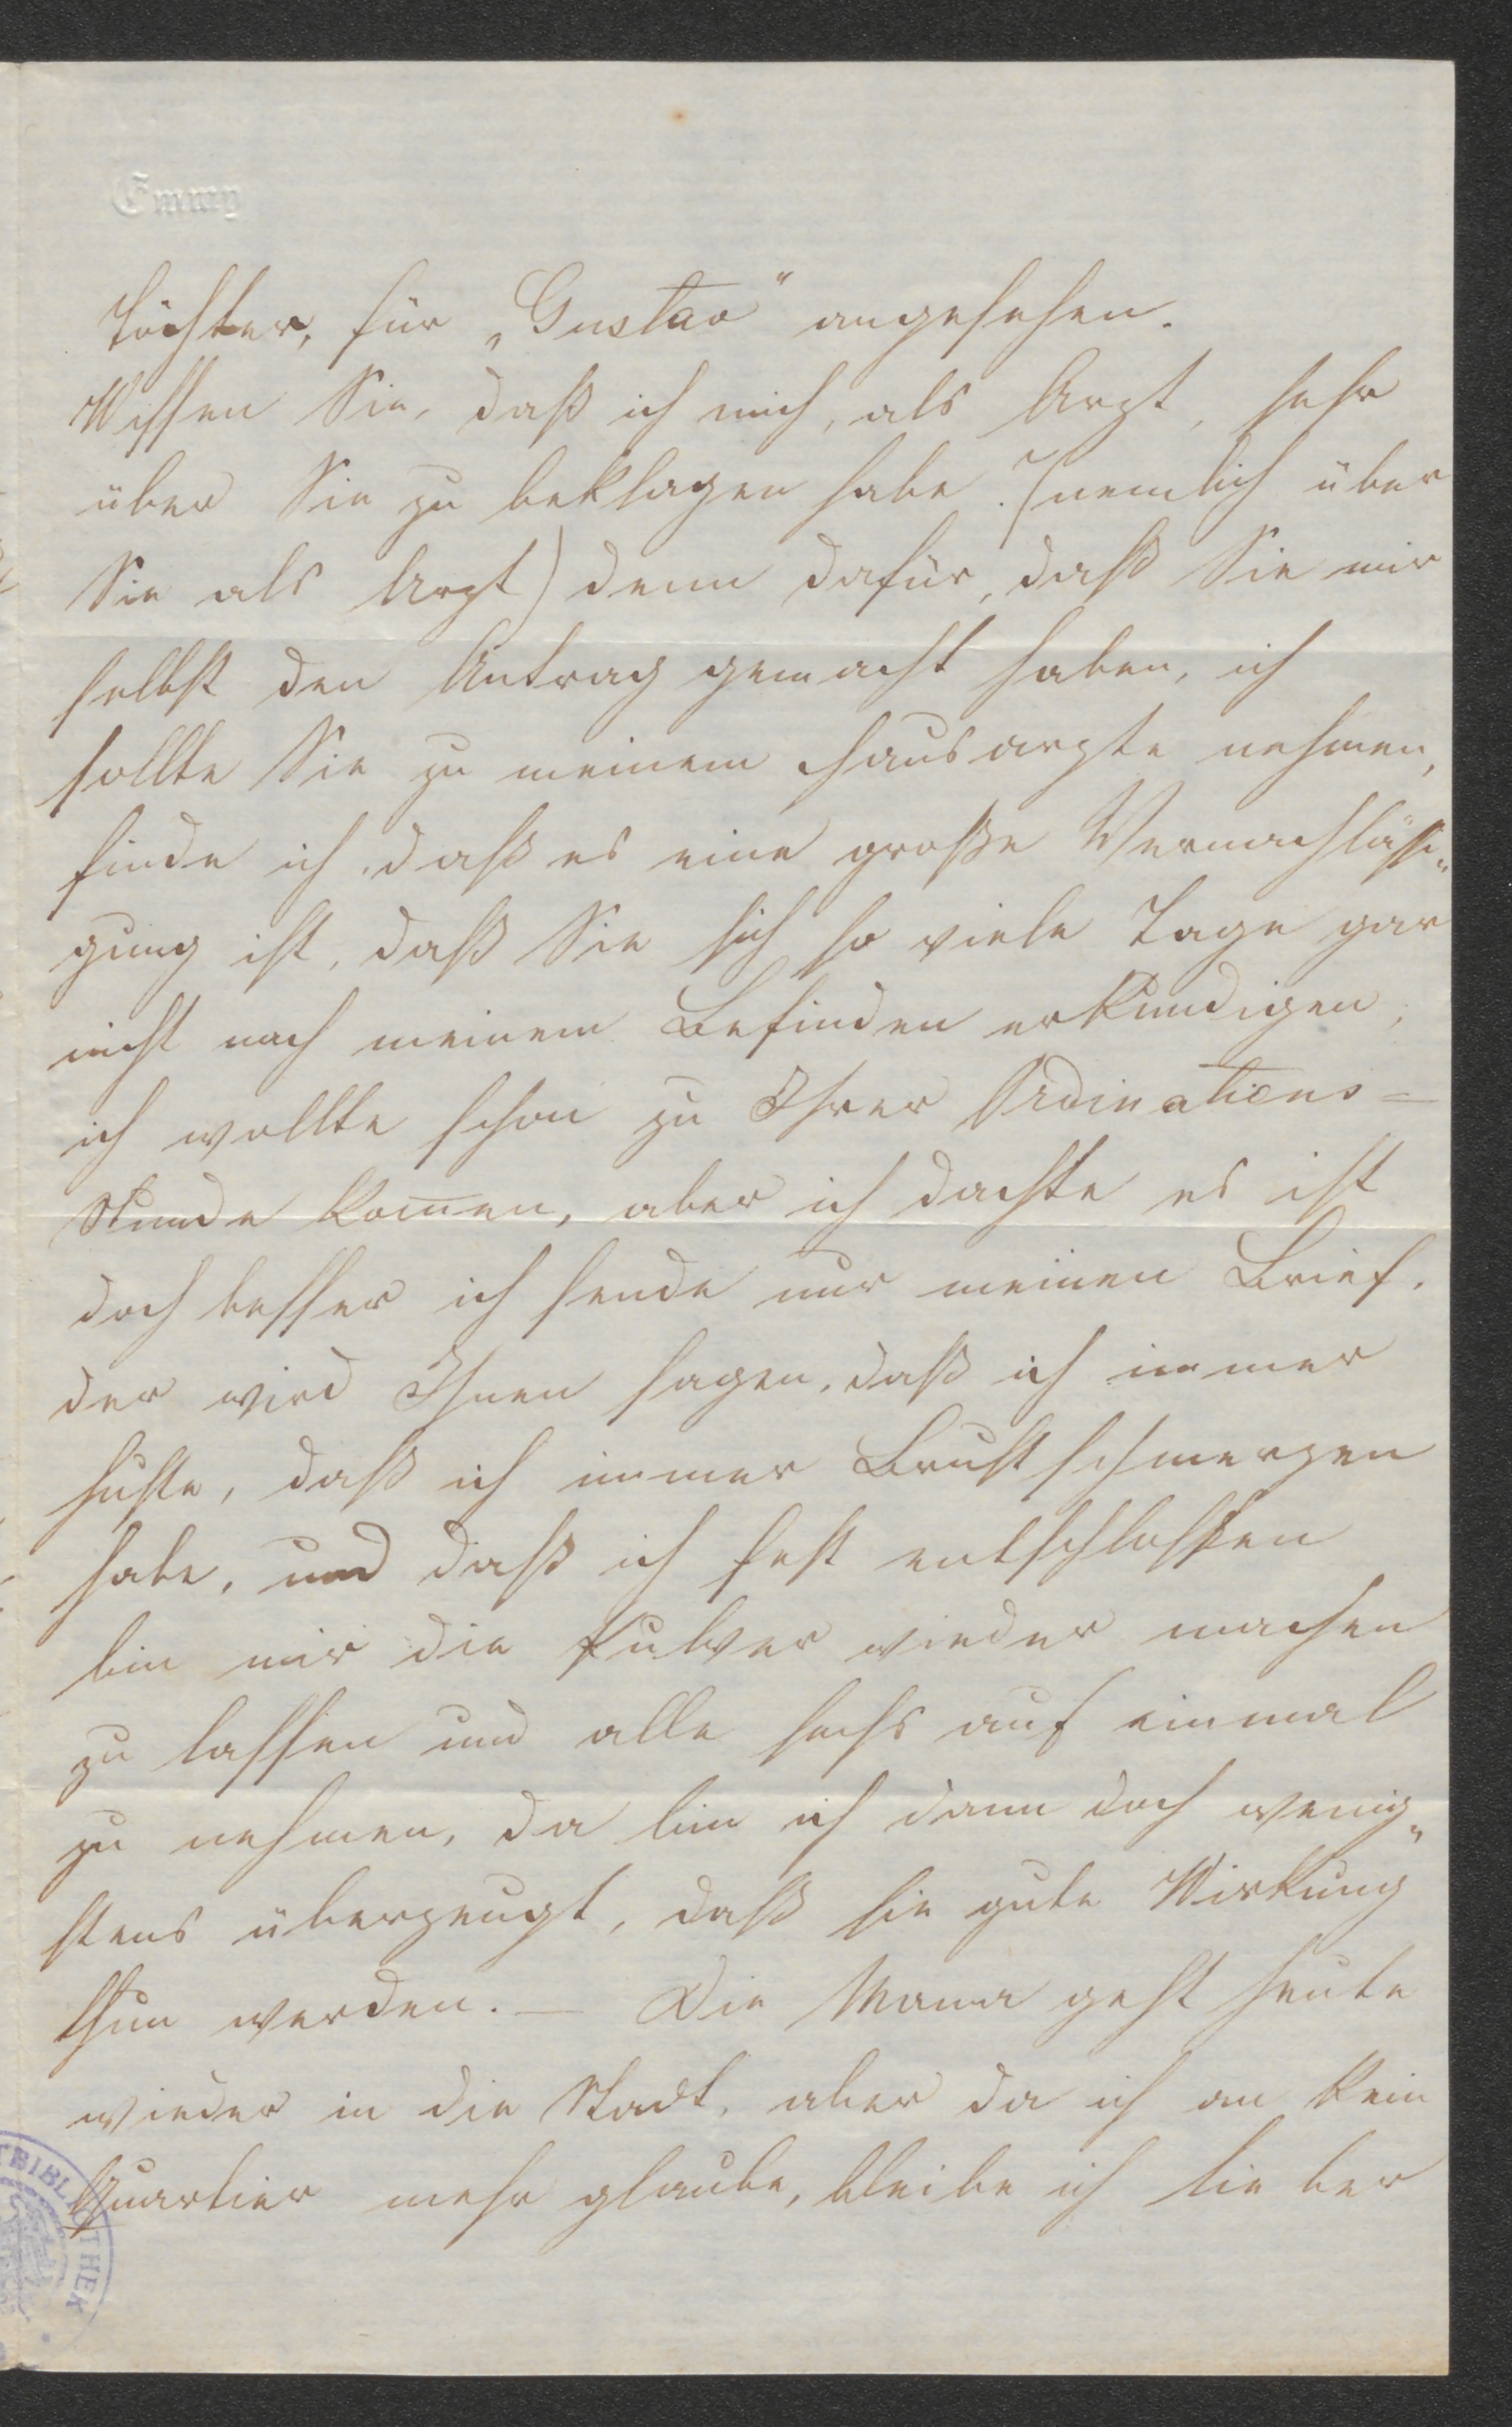 Emmy
Töchter, für „Gustav" angesehen.
Wissen Sie, daß ich mich, als Arzt, sehr
über Sie zu beklagen habe? (nemlich über
Sie als Arzt) denn dafür, daß Sie mir
selbst den Antrag gemacht haben, ich
sollte Sie zu meinem Hausarzte nehmen,
finde ich, daß es eine große Vernachlässi„
gung ist, daß Sie sich so viele Tage gar
nicht nach meinem Befinden erkundigen,
ich wollte schon zu Ihrer Ordinations=
Stunde kom̅en, aber ich dachte es ist
doch besser ich sende nur meinen Brief,
der wird Ihnen sagen, daß ich immer
huste, daß ich immer Brustschmerzen
habe, und daß ich fest entschlossen
bin mir die Pulver wieder machen
zu lassen und alle sechs auf einmal
zu nehmen, da bin ich dann doch wenig„
stens überzeugt, daß sie gute Wirkung
thun werden. — Die Mama geht heute
wieder in die Stadt, aber da ich an kein
Quartier mehr glaube, bleibe ich lieber
TBIBLIOTHEK